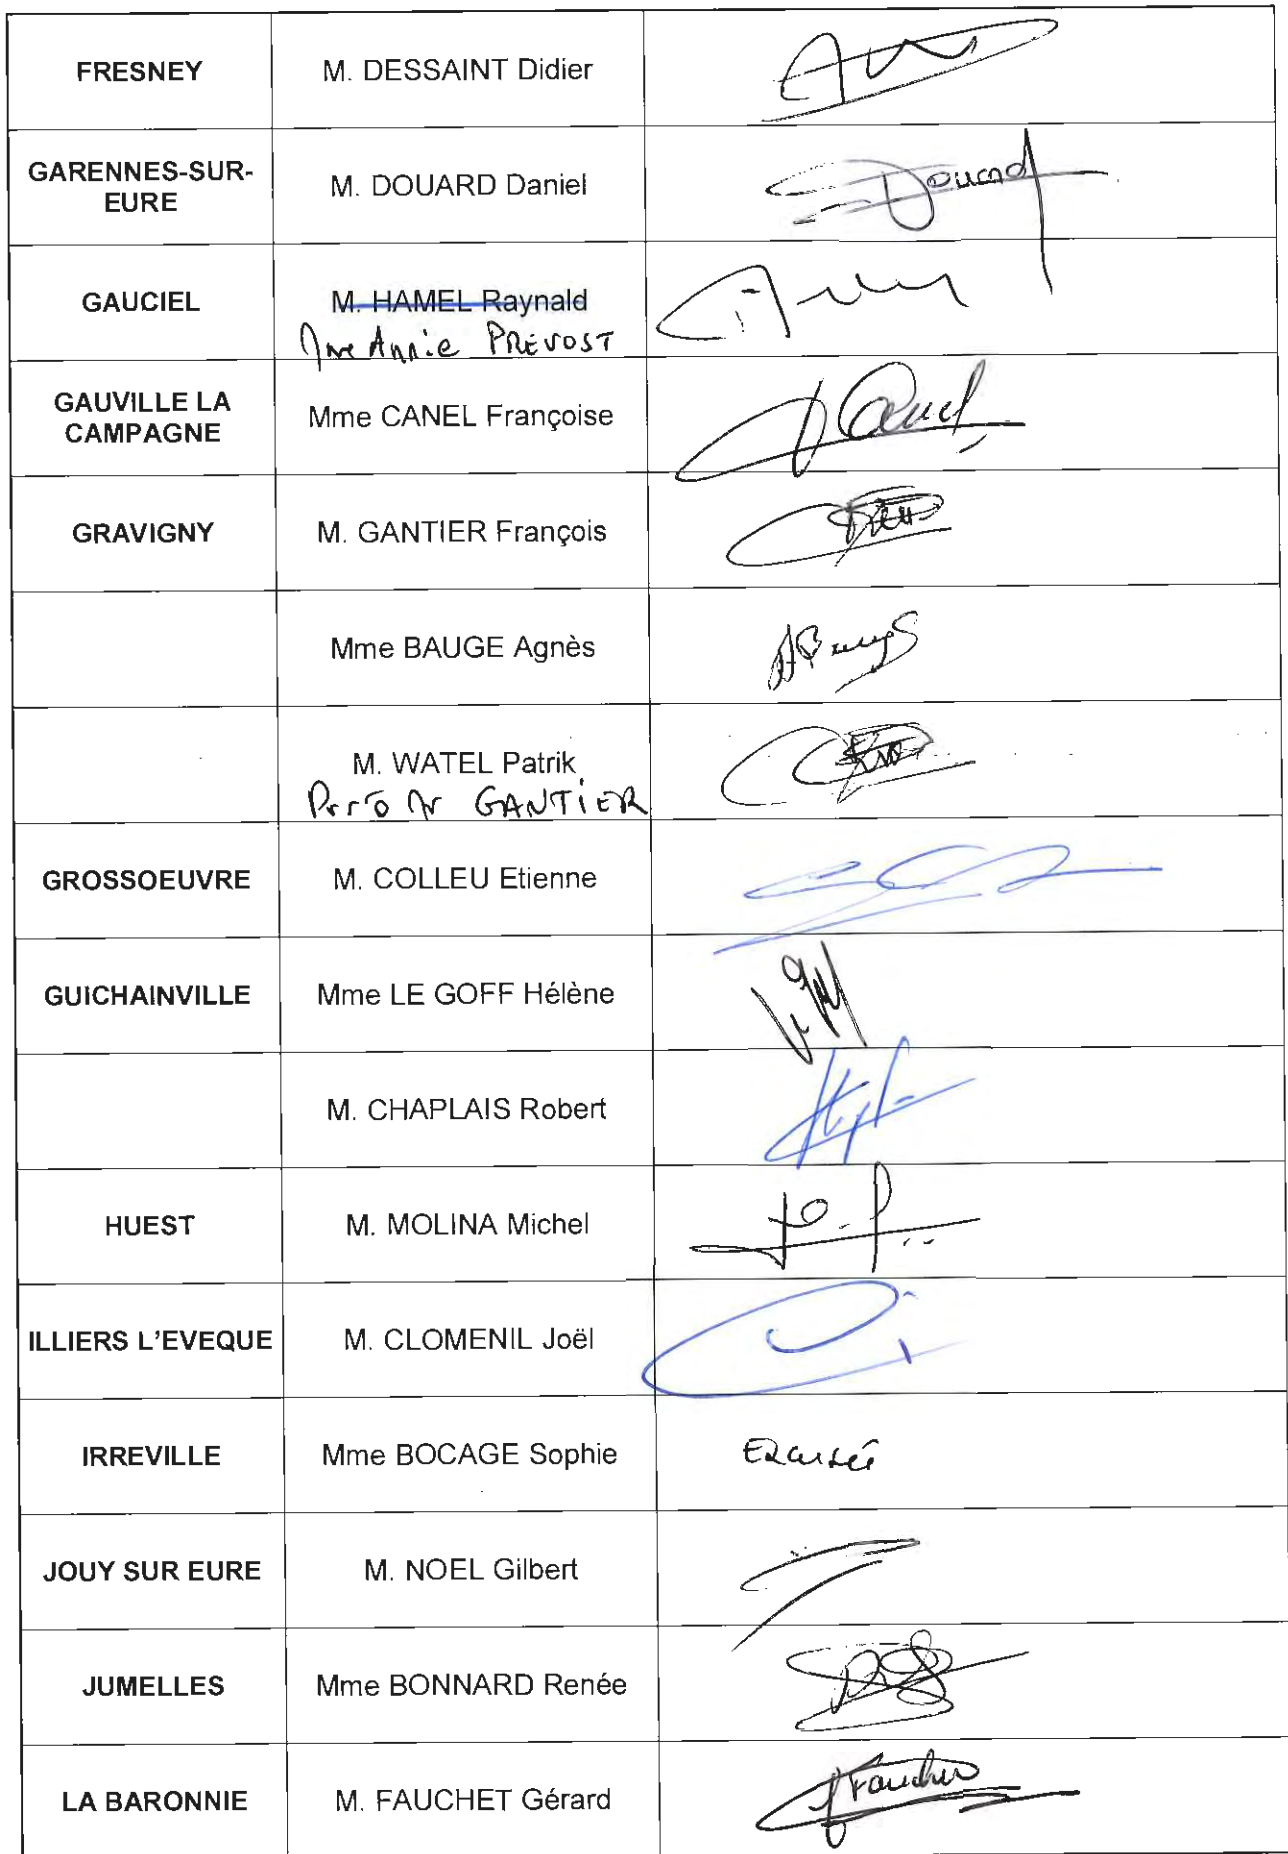 FRESNEY
M. DESSAINT Didier
GARENNES-SUR-
EURE
M. DOUARD Daniel
Douard
GAUCIEL
M. HAMEL Raynald
Mme Annie PREVOST
GAUVILLE LA
CAMPAGNE
Mme CANEL Françoise
GRAVIGNY
M. GANTIER François
Mme BAUGE Agnès
M. WATEL Patrik
GANTIER
GROSSOEUVRE
M. COLLEU Etienne
GUICHAINVILLE
Mme LE GOFF Hélène
M. CHAPLAIS Robert
HUEST
M. MOLINA Michel
ILLIERS L'EVEQUE
M. CLOMENIL Joël
IRREVILLE
Mme BOCAGE Sophie
Excusée
JOUY SUR EURE
M. NOEL Gilbert
JUMELLES
Mme BONNARD Renée
LA BARONNIE
M. FAUCHET Gérard